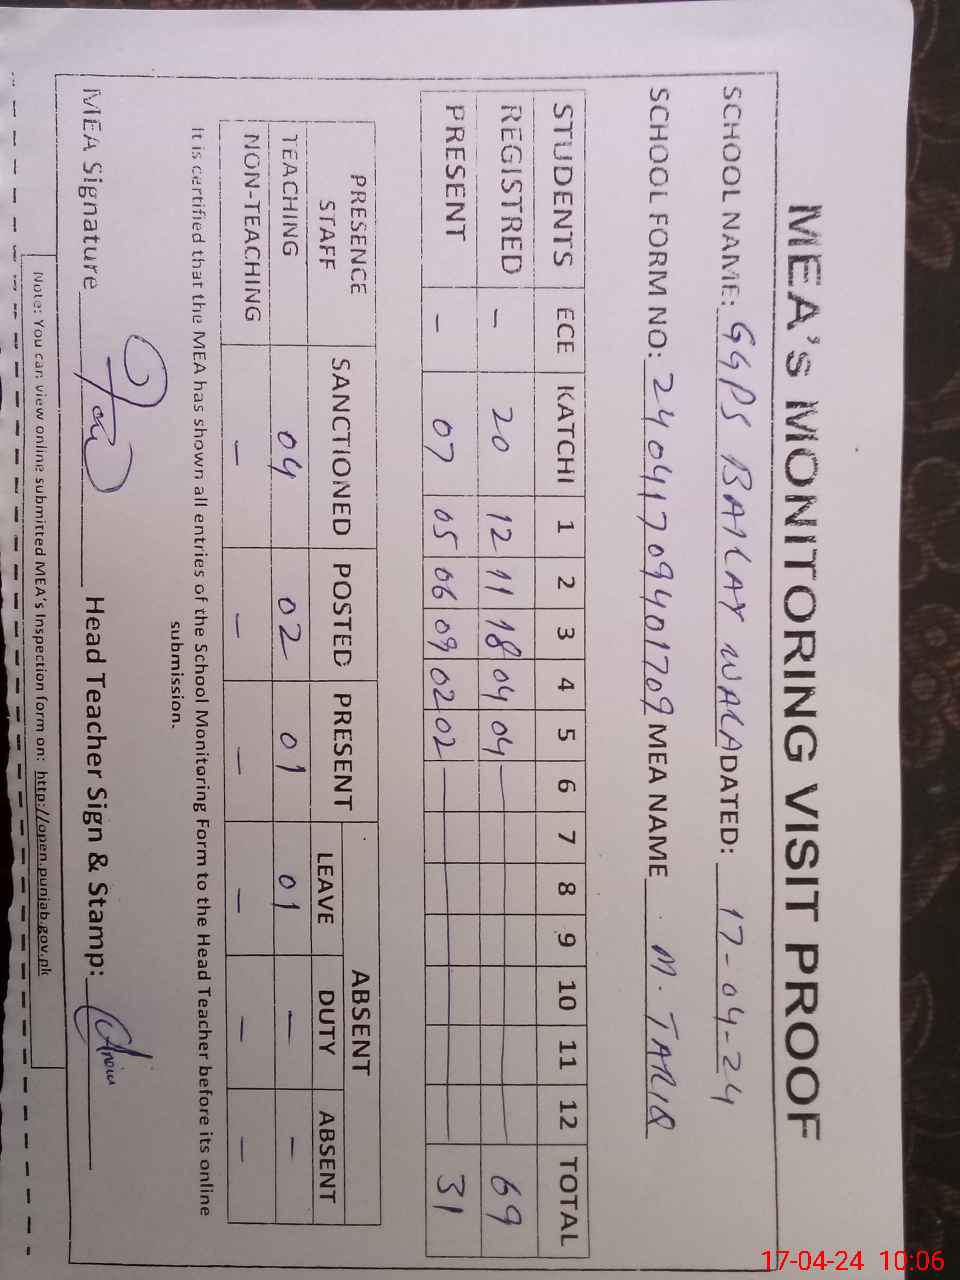 MEA's MONITORING VISIT PROOF
SCHOOL NAME: GGPS BAILAY WALA DATED: 17-04-24
SCHOOL FORM NO: 24041709401709 MEA NAME M. TARIQ
STUDENTS ECE KATCHI 1 2 3 4 5 6 7 8 9 10 11 12 TOTAL
REGISTRED - 20 12 11 18 04 04 69
PRESENT - 07 05 06 09 02 02 31
PRESENCE STAFF SANCTIONED POSTED PRESENT ABSENT
LEAVE DUTY ABSENT
TEACHING 04 02 01 01 - -
NON-TEACHING - - - - - -
It is certified that the MEA has shown all entries of the School Monitoring Form to the Head Teacher before its online
submission.
MEA Signature Head Teacher Sign & Stamp:
Note: You can view online submitted MEA's Inspection form on: http://open.punjab.gov.pk
17-04-24 10:06